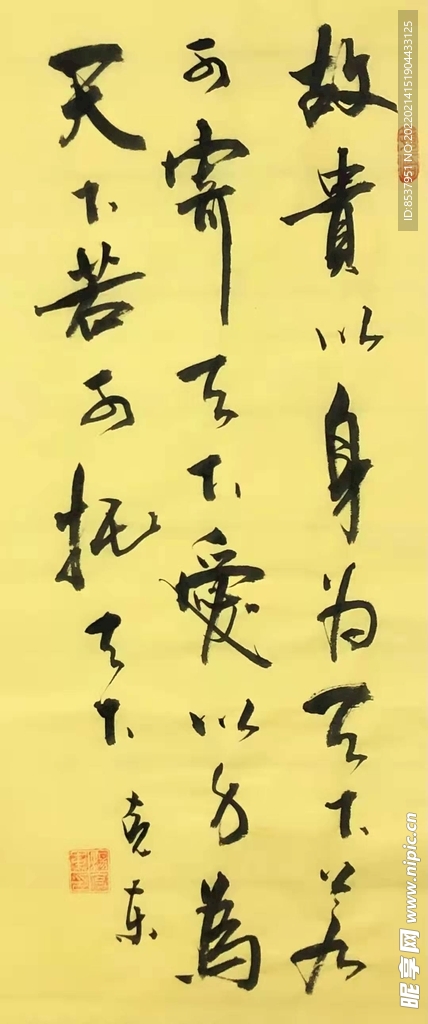 故貴以身为天下若
可寄天下愛以身為
天下若可托天下
克东
ID:8537951 NO:20220214151904433125
昵享网 www.nipic.cn